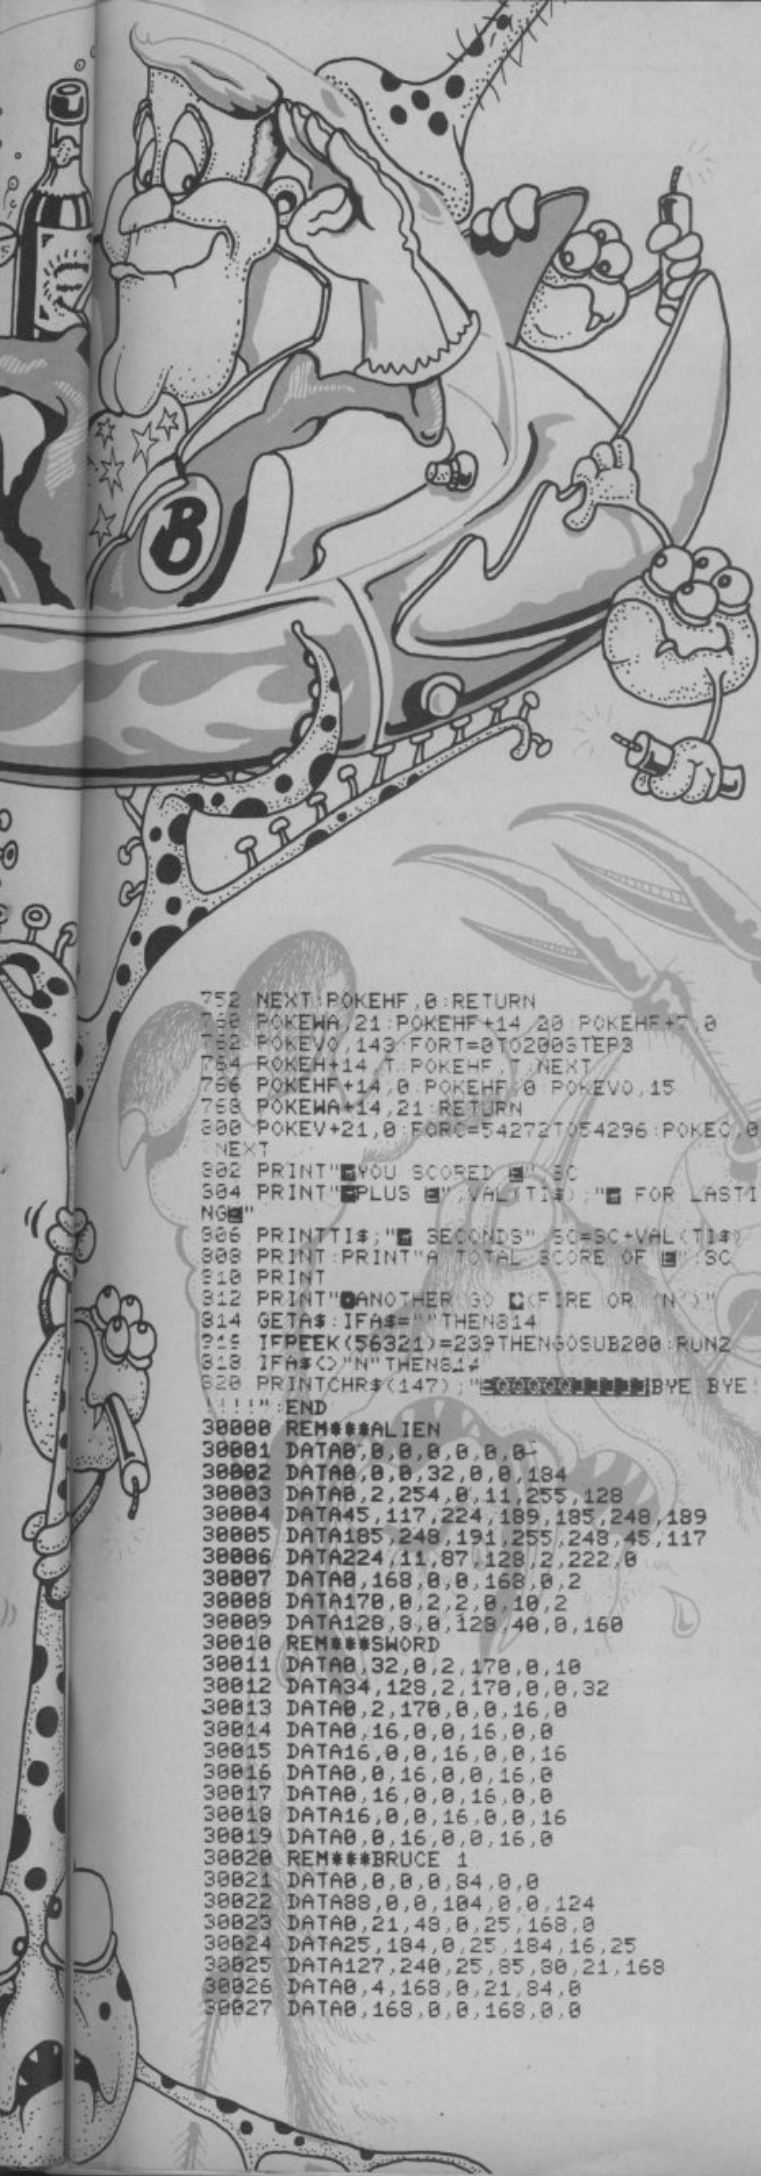 B
752 NEXT:POKEHF,0:RETURN
760 POKEWA,21:POKEHF+14,20:POKEHF+7,0
762 POKEVO,143:FORT=0TO200STEP3
764 POKEH+14,T:POKEHF,T:NEXT
766 POKEHF+14,0:POKEHF,0:POKEVO,15
768 POKEWA+14,21:RETURN
800 POKEV+21,0:FORC=54272TO54296:POKEC,0
:NEXT
802 PRINT"YOU SCORED ";SC
804 PRINT"PLUS ";VAL(TI$);" FOR LASTI
NG"
806 PRINTTI$;" SECONDS":SC=SC+VAL(TI$)
808 PRINT:PRINT"A TOTAL SCORE OF ";SC
810 PRINT
812 PRINT"ANOTHER GO (FIRE OR 'N')"
814 GETA$:IFA$=""THEN814
816 IFPEEK(56321)=239THENGOSUB200:RUN2
818 IFA$<>"N"THEN814
820 PRINTCHR$(147);"QQQQQ]]]]]BYE BYE
!!!!":END
30000 REM***ALIEN
30001 DATA0,0,0,0,0,0,0
30002 DATA0,0,0,32,0,0,184
30003 DATA0,2,254,0,11,255,128
30004 DATA45,117,224,189,185,248,189
30005 DATA185,248,191,255,248,45,117
30006 DATA224,11,87,128,2,222,0
30007 DATA0,168,0,0,168,0,2
30008 DATA170,0,2,2,0,10,2
30009 DATA128,8,0,128,40,0,160
30010 REM***SWORD
30011 DATA0,32,0,2,170,0,10
30012 DATA34,128,2,170,0,0,32
30013 DATA0,2,170,0,0,16,0
30014 DATA0,16,0,0,16,0,0
30015 DATA16,0,0,16,0,0,16
30016 DATA0,0,16,0,0,16,0
30017 DATA0,16,0,0,16,0,0
30018 DATA16,0,0,16,0,0,16
30019 DATA0,0,16,0,0,16,0
30020 REM***BRUCE 1
30021 DATA0,0,0,0,84,0,0
30022 DATA88,0,0,104,0,0,124
30023 DATA0,21,48,0,25,168,0
30024 DATA25,184,0,25,184,16,25
30025 DATA127,240,25,85,80,21,168
30026 DATA0,4,168,0,21,84,0
30027 DATA0,168,0,0,168,0,0